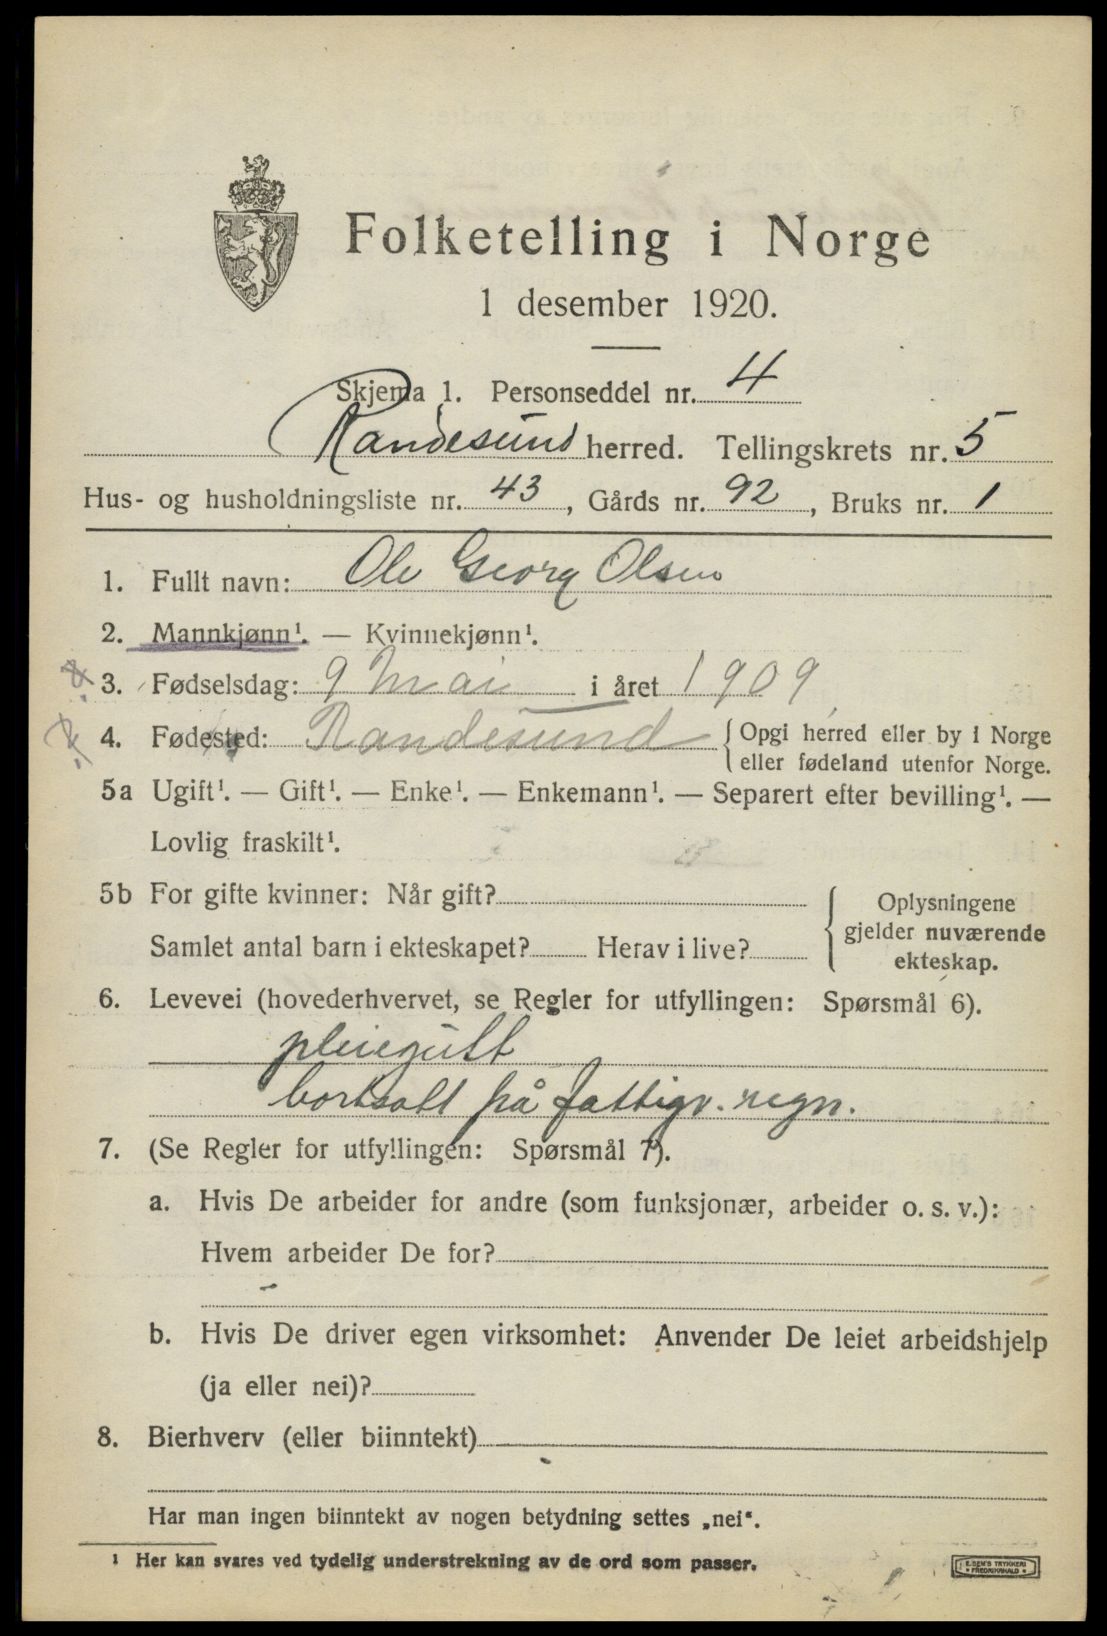 Folketelling i Norge
1 desember 1920.
Skjema 1. Personseddel nr. 4
Randesund herred. Tellingskrets nr. 5
Hus- og husholdningsliste nr. 43, Gårds nr. 92, Bruks nr. 1
1. Fullt navn: Ole Georg Olsen
2. Mannkjønn¹. — Kvinnekjønn¹.
3. Fødselsdag: 9 Mai i året 1909
4. Fødested: Randesund { Opgi herred eller by i Norge
eller fødeland utenfor Norge.
5a Ugift¹. — Gift¹. — Enke¹. — Enkemann¹. — Separert efter bevilling¹. —
Lovlig fraskilt¹.
5b For gifte kvinner: Når gift?
Samlet antal barn i ekteskapet? Herav i live?
{ Oplysningene
gjelder nuværende
ekteskap.
6. Levevei (hovederhvervet, se Regler for utfyllingen: Spørsmål 6).
pleiegutt
bortsatt på fattigv. regn.
7. (Se Regler for utfyllingen: Spørsmål 7).
a. Hvis De arbeider for andre (som funksjonær, arbeider o. s. v.):
Hvem arbeider De for?
b. Hvis De driver egen virksomhet: Anvender De leiet arbeidshjelp
(ja eller nei)?
8. Bierhverv (eller biinntekt)
Har man ingen biinntekt av nogen betydning settes „nei“.
¹ Her kan svares ved tydelig understrekning av de ord som passer.
E. SEM'S TRYKKERI
* FREDRIKSHALD *